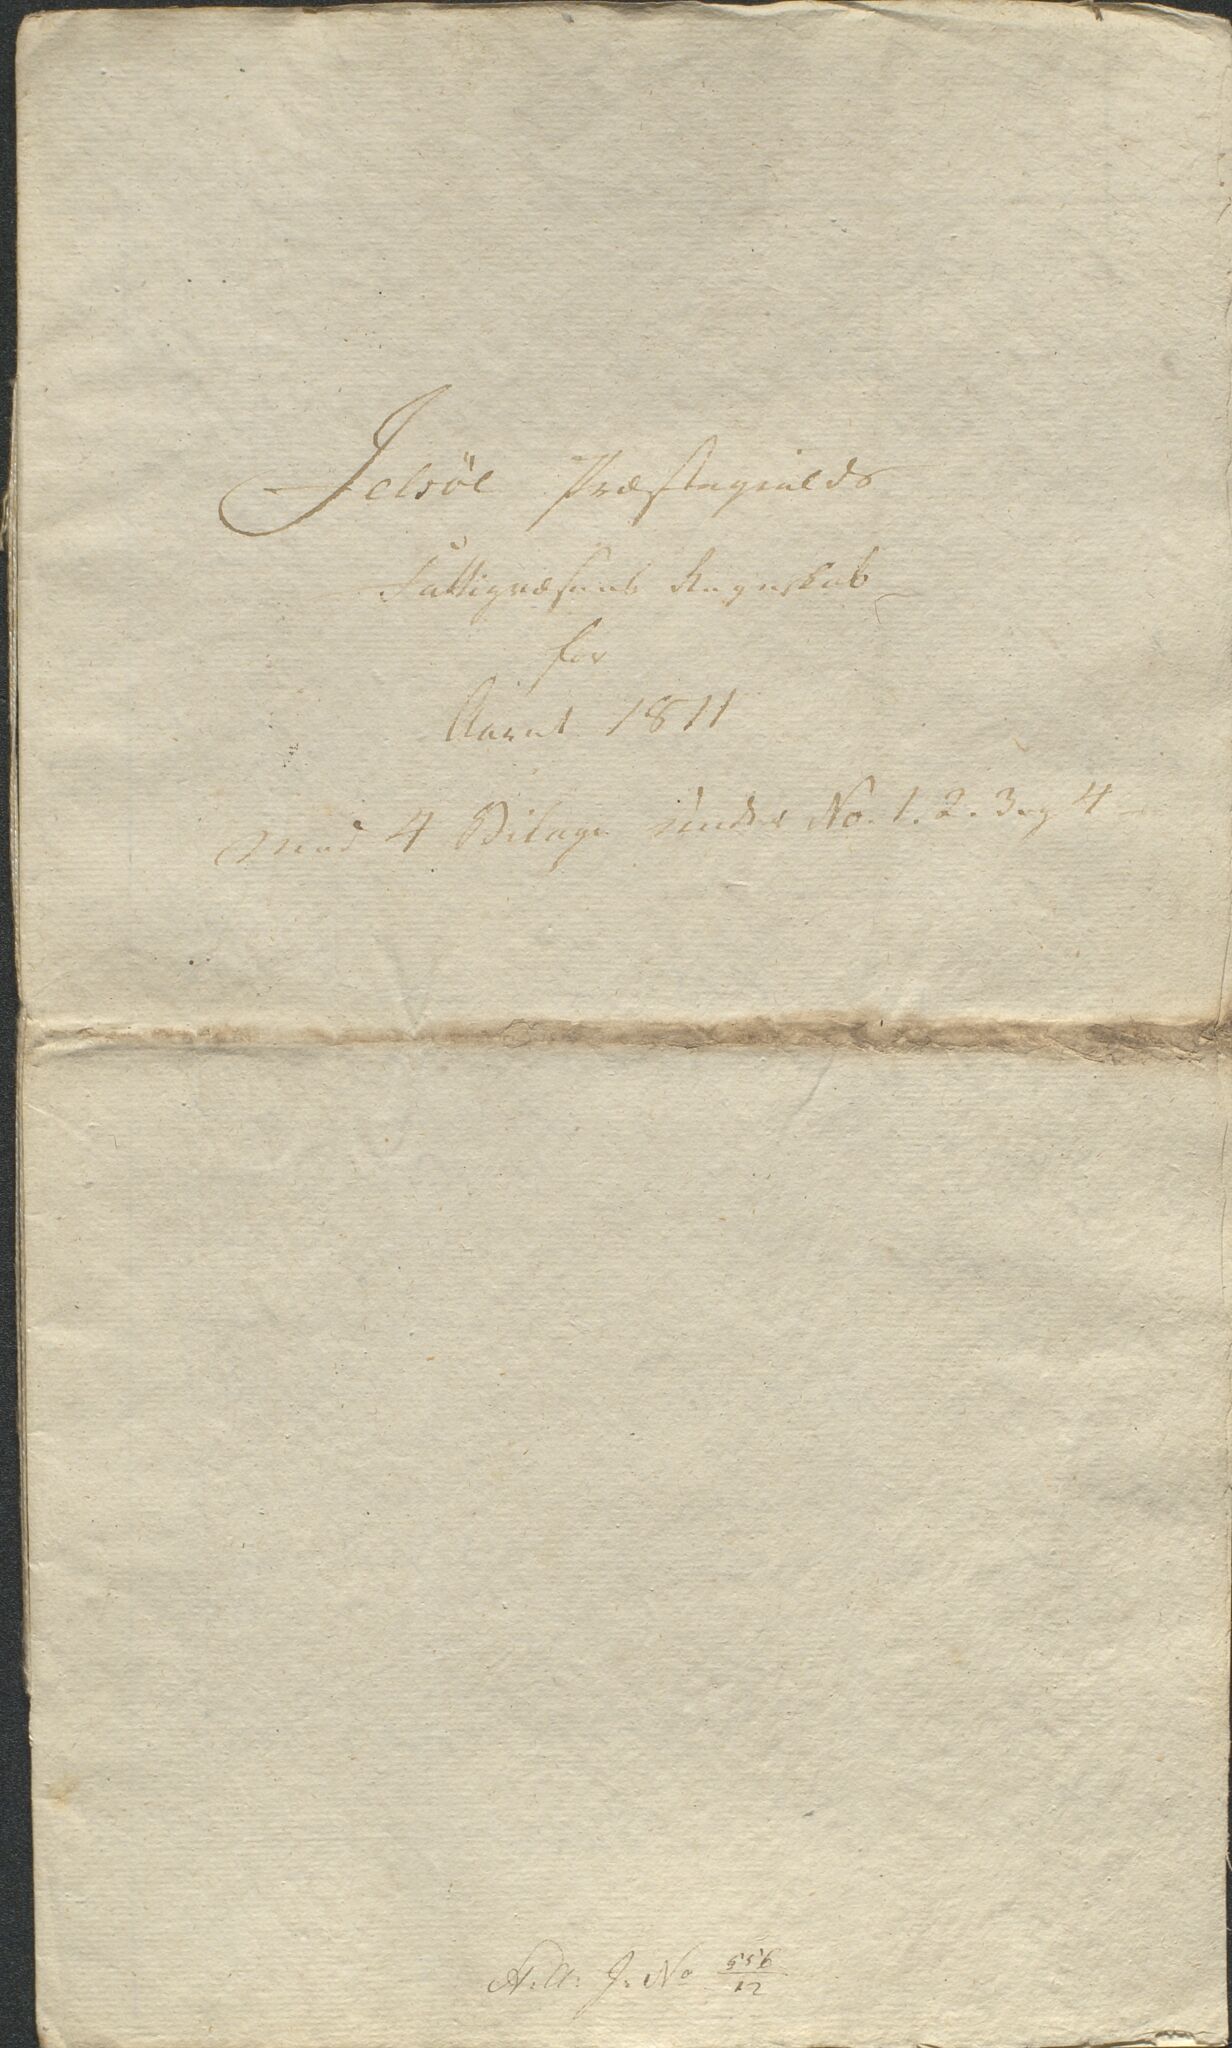 Jelsöe Præstegields
Fattigvæsens Regnskab
for
Aaret 1811
med 4 Bilage under No. 1. 2. 3 og 4
A: A: J: No 556/12